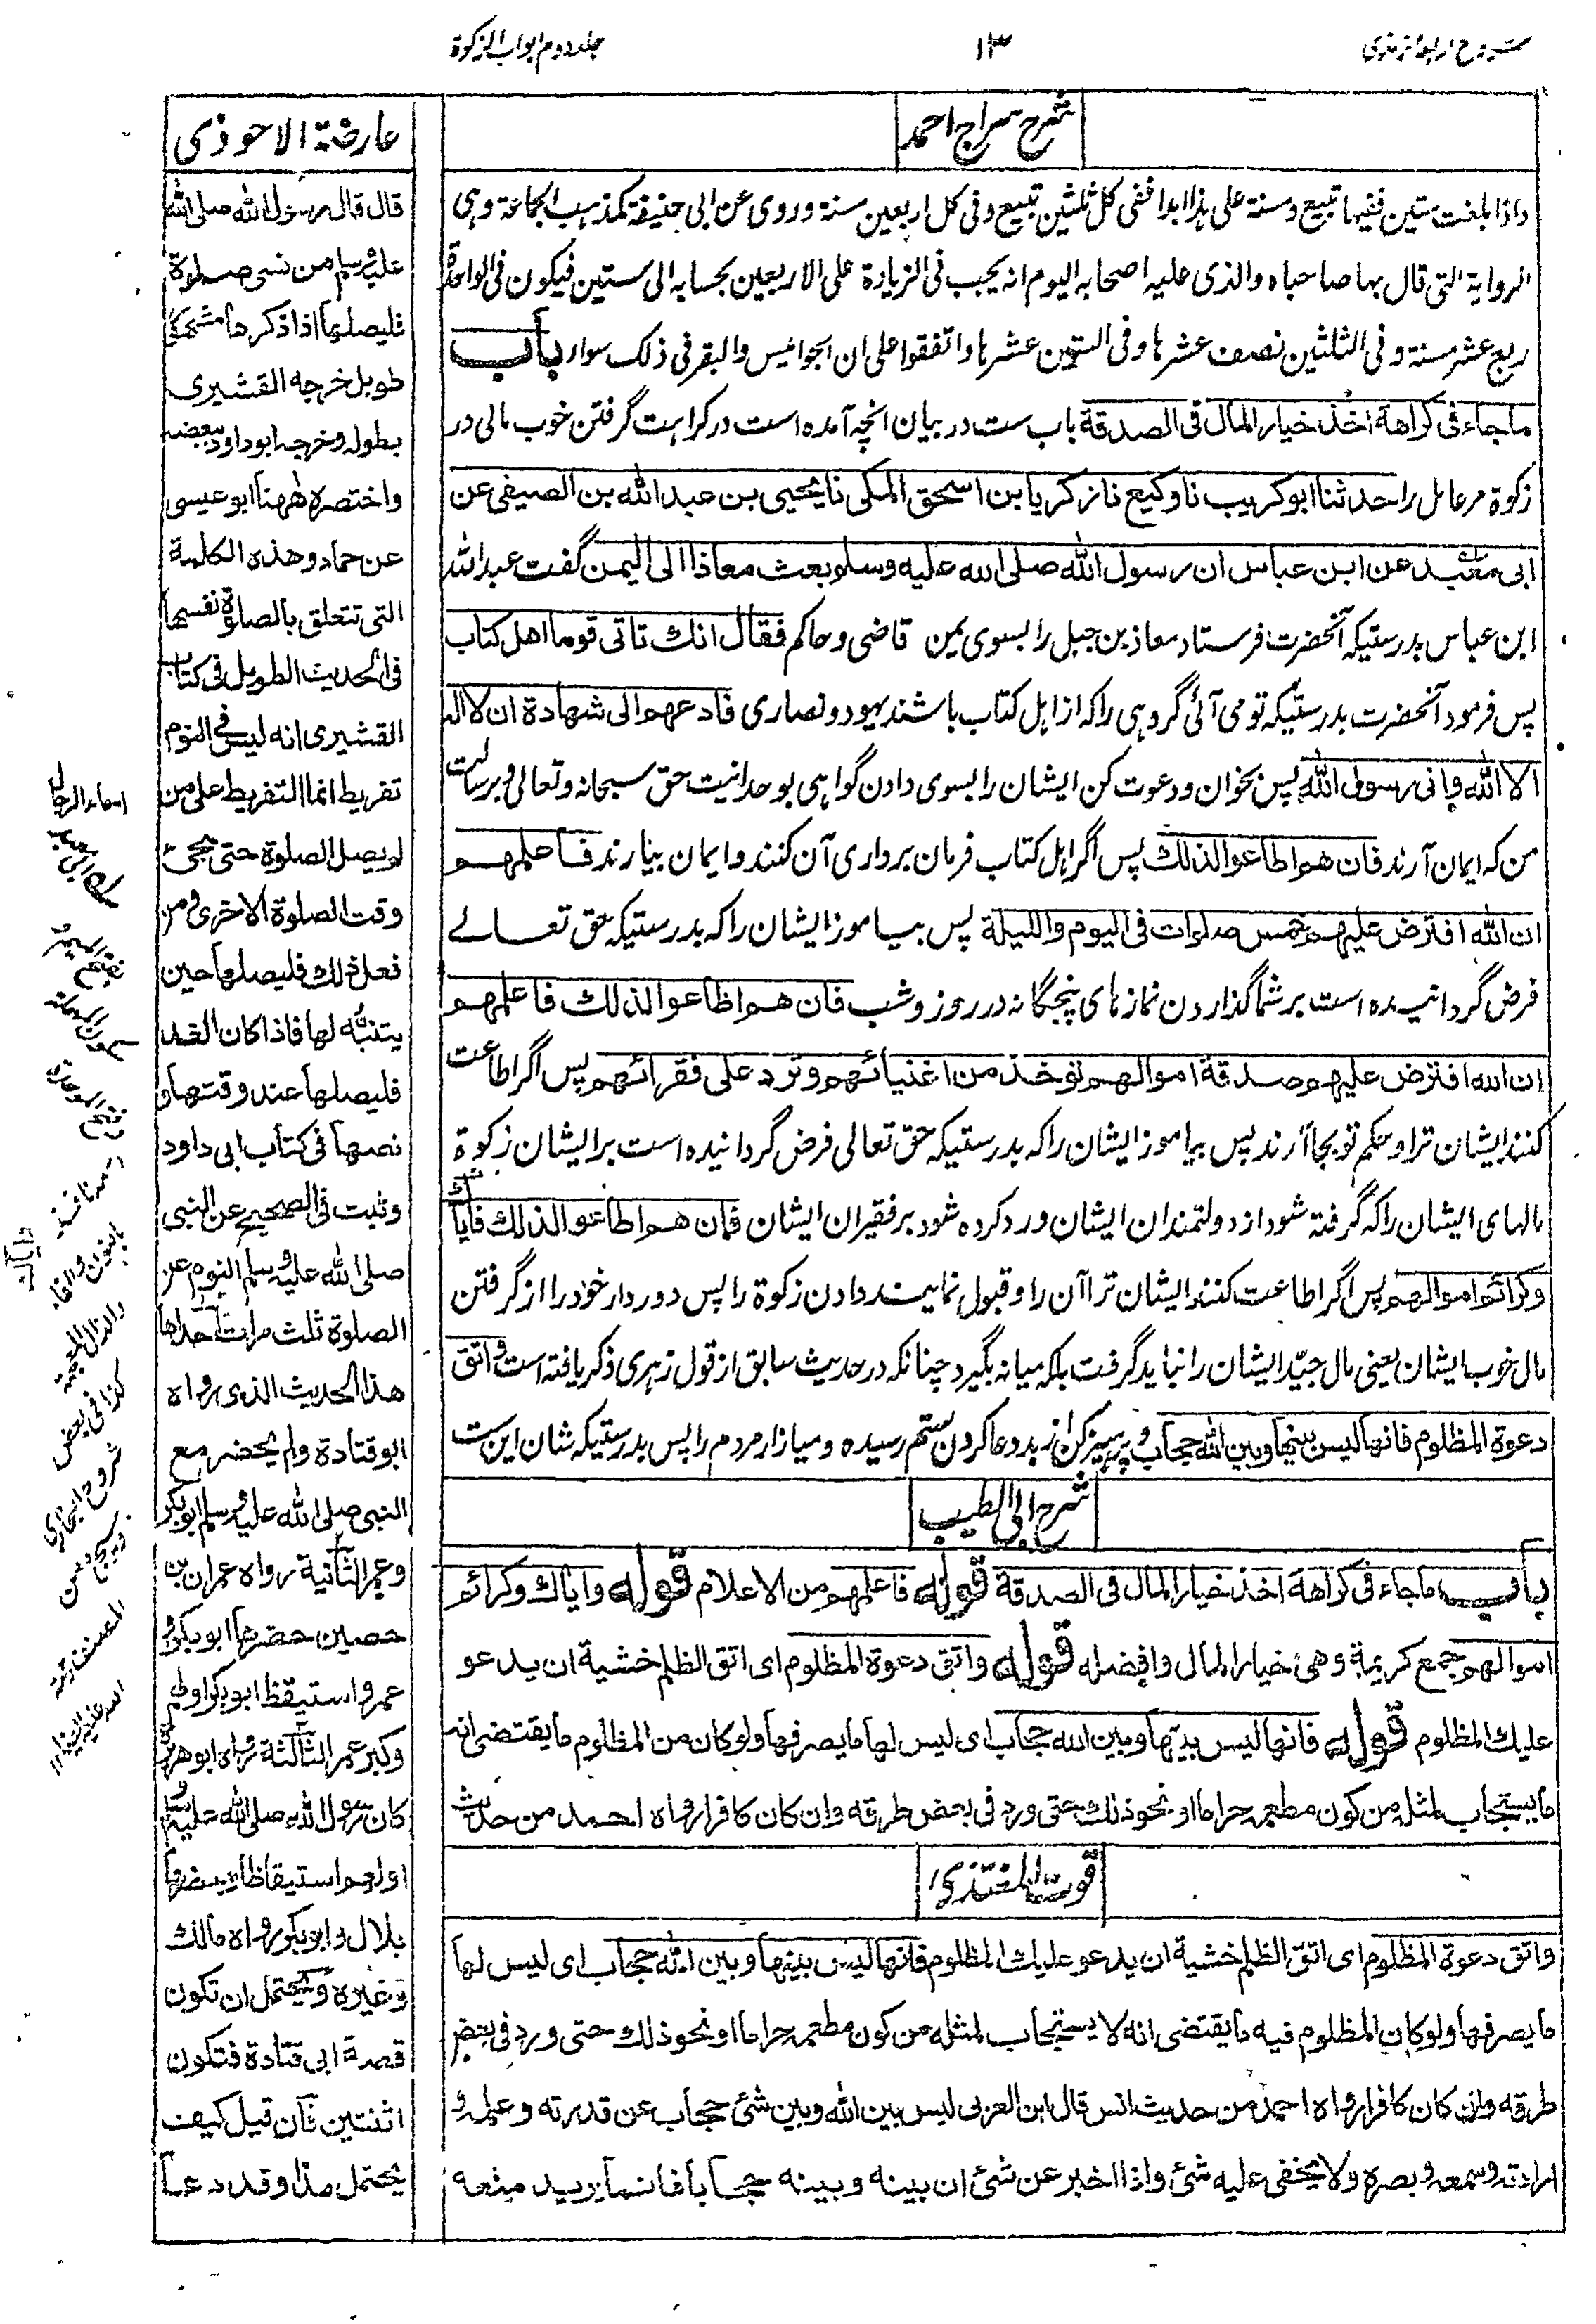 شروح اربعۂ ترمذی
۱۳
جلد دوم ابواب الزکوة
شرح سراج احمد
واذا بلغت ستین ففیها تبیع ومسنة علی هذا ابدا ففی کل ثلثین تبیع وفی کل اربعین مسنة وروی عن ابی حنیفة کمذهب الجماعة وهی
الروایة التی قال بها صاحباه والذی علیه اصحابه الیوم انه یجب فی الزیادة علی الاربعین بحسابه الی ستین فیکون فی الواحدة
ربع عشر مسنة وفی الثلثین نصف عشرها وفی الستین عشرها واتفقوا علی ان الجوامیس والبقر فی ذلک سواء باب
ماجاء فی کراهة اخذ خیار المال فی الصدقة باب ست در بیان انچه آمده است در کراهت گرفتن خوب مالی در
زکوة مر عامل را حدثنا ابو کریب نا وکیع نا زکریا بن اسحق المکی نا یحیی بن عبد الله بن الصیفی عن
ابی معبد عن ابن عباس ان رسول الله صلی الله علیه وسلم بعث معاذا الی الیمن گفت عبد الله
ابن عباس بدرستیکه آنحضرت فرستاد معاذ بن جبل را بسوی یمن قاضی وحاکم فقال انک تاتی قوما اهل کتاب
پس فرمود آنحضرت بدرستیکه تو می آئی گروهی را که از اهل کتاب باشند یهود ونصاری فادعهم الی شهادة ان لا اله
الا الله وانی رسول الله پس بخوان ودعوت کن ایشان را بسوی دادن گواهی بوحدانیت حق سبحانه وتعالی وبرسالت
من که ایمان آرند فان هم اطاعوا لذلک پس اگر اهل کتاب فرمان برداری آن کنند وایمان بیارند فاعلمهم
ان الله افترض علیهم خمس صلوات فی الیوم واللیلة پس بیاموز ایشان را که بدرستیکه حق تعالے
فرض گردانیده است بر شما گذاردن نمازهای پنجگانه در روز وشب فان هم اطاعوا لذلک فاعلمهم
ان الله افترض علیهم صدقة اموالهم توخذ من اغنیائهم وترد علی فقرائهم پس اگر اطاعت
کنند ایشان ترا وحکم تو بجا آرند پس بیاموز ایشان را که بدرستیکه حق تعالی فرض گردانیده است بر ایشان زکوة
مالهای ایشان را که گرفته شود از دولتمندان ایشان ورد کرده شود بر فقیران ایشان فان هم اطاعوا لذلک فایاک
وکرائم اموالهم پس اگر اطاعت کنند ایشان ترا آن را وقبول نمایند دادن زکوة را پس دور دار خود را از گرفتن
مال خوب ایشان یعنی مال جید ایشان را نباید گرفت بلکه میانه بگیرد چنانکه در حدیث سابق از قول زهری ذکر یافته است واتق
دعوة المظلوم فانها لیس بینها وبین الله حجاب وپرهیز کن از بد دعا کردن ستم رسیده ومیازار مردم را پس بدرستیکه شان این ست
شرح ابی الطیب
باب ماجاء فی کراهة اخذ خیار المال فی الصدقة قوله فاعلمهم من الاعلام قوله وایاک وکرائم
اموالهم جمع کریمة وهی خیار المال وافضله قوله واتق دعوة المظلوم ای اتق الظلم خشیة ان یدعو
علیک المظلوم قوله فانها لیس بینها وبین الله حجاب ای لیس لها ما یصرفها ولو کان من المظلوم ما یقتضی انه
ما یستجاب لمثله من کون مطعمه حراما او نحو ذلک حتی ورد فی بعض طرقه وان کان کافرا رواه احمد من حدیث
قوت المغتذی
واتق دعوة المظلوم ای اتق الظلم خشیة ان یدعو علیک المظلوم فانها لیس بینها وبین الله حجاب ای لیس لها
ما یصرفها ولو کان المظلوم فیه ما یقتضی انه لا یستجاب لمثله من کون مطعمه حراما او نحو ذلک حتی ورد فی بعض
طرقه وان کان کافرا رواه احمد من حدیث انس قال ابن العربی لیس بین الله وبین شئ حجاب عن قدرته وعلمه و
ارادته وسمعه وبصره ولا یخفی علیه شئ واذا اخبر عن شئ ان بینه وبینه حجابا فانما یرید منعه
عارضة الاحوذی
قال قال رسول الله صلی الله
علیه وسلم من نسی صلوة
فلیصلها اذا ذکرها
طویل خرجه القشیری
بطوله وخرجه ابو داود بعضه
واختصره ههنا ابو عیسی
عن حماد وهذه الکلمة
التی تتعلق بالصلوة نفسها
فی الحدیث الطویل فی کتاب
القشیری انه لیس فی النوم
تفریط انما التفریط علی من
لم یصل الصلوة حتی یجئ
وقت الصلوة الاخری ومن
فعل ذلک فلیصلها حین
یتنبه لها فاذا کان الغد
فلیصلها عند وقتها و
نصها فی کتاب ابی داود
وثبت فی الصحیح عن النبی
صلی الله علیه وسلم النوم عن
الصلوة ثلث مرات احداها
هذا الحدیث الذی رواه
ابو قتادة ولم یحضر مع
النبی صلی الله علیه وسلم ابو بکر
وعمر الثانیة رواه عمران بن
حصین حضرها ابو بکر و
عمر واستیقظ ابو بکر اولهم
وکبر عمر الثالثة رواه ابو هریرة
کان رسول الله صلی الله علیه وسلم
اولهم استیقاظا لم یحضرها
بلال وابو بکر رواه مالک
وغیره ویحتمل ان تکون
قصة ابی قتادة فتکون
اثنتین فان قیل کیف
یحتمل هذا وقد دعا
اسماء الرجال